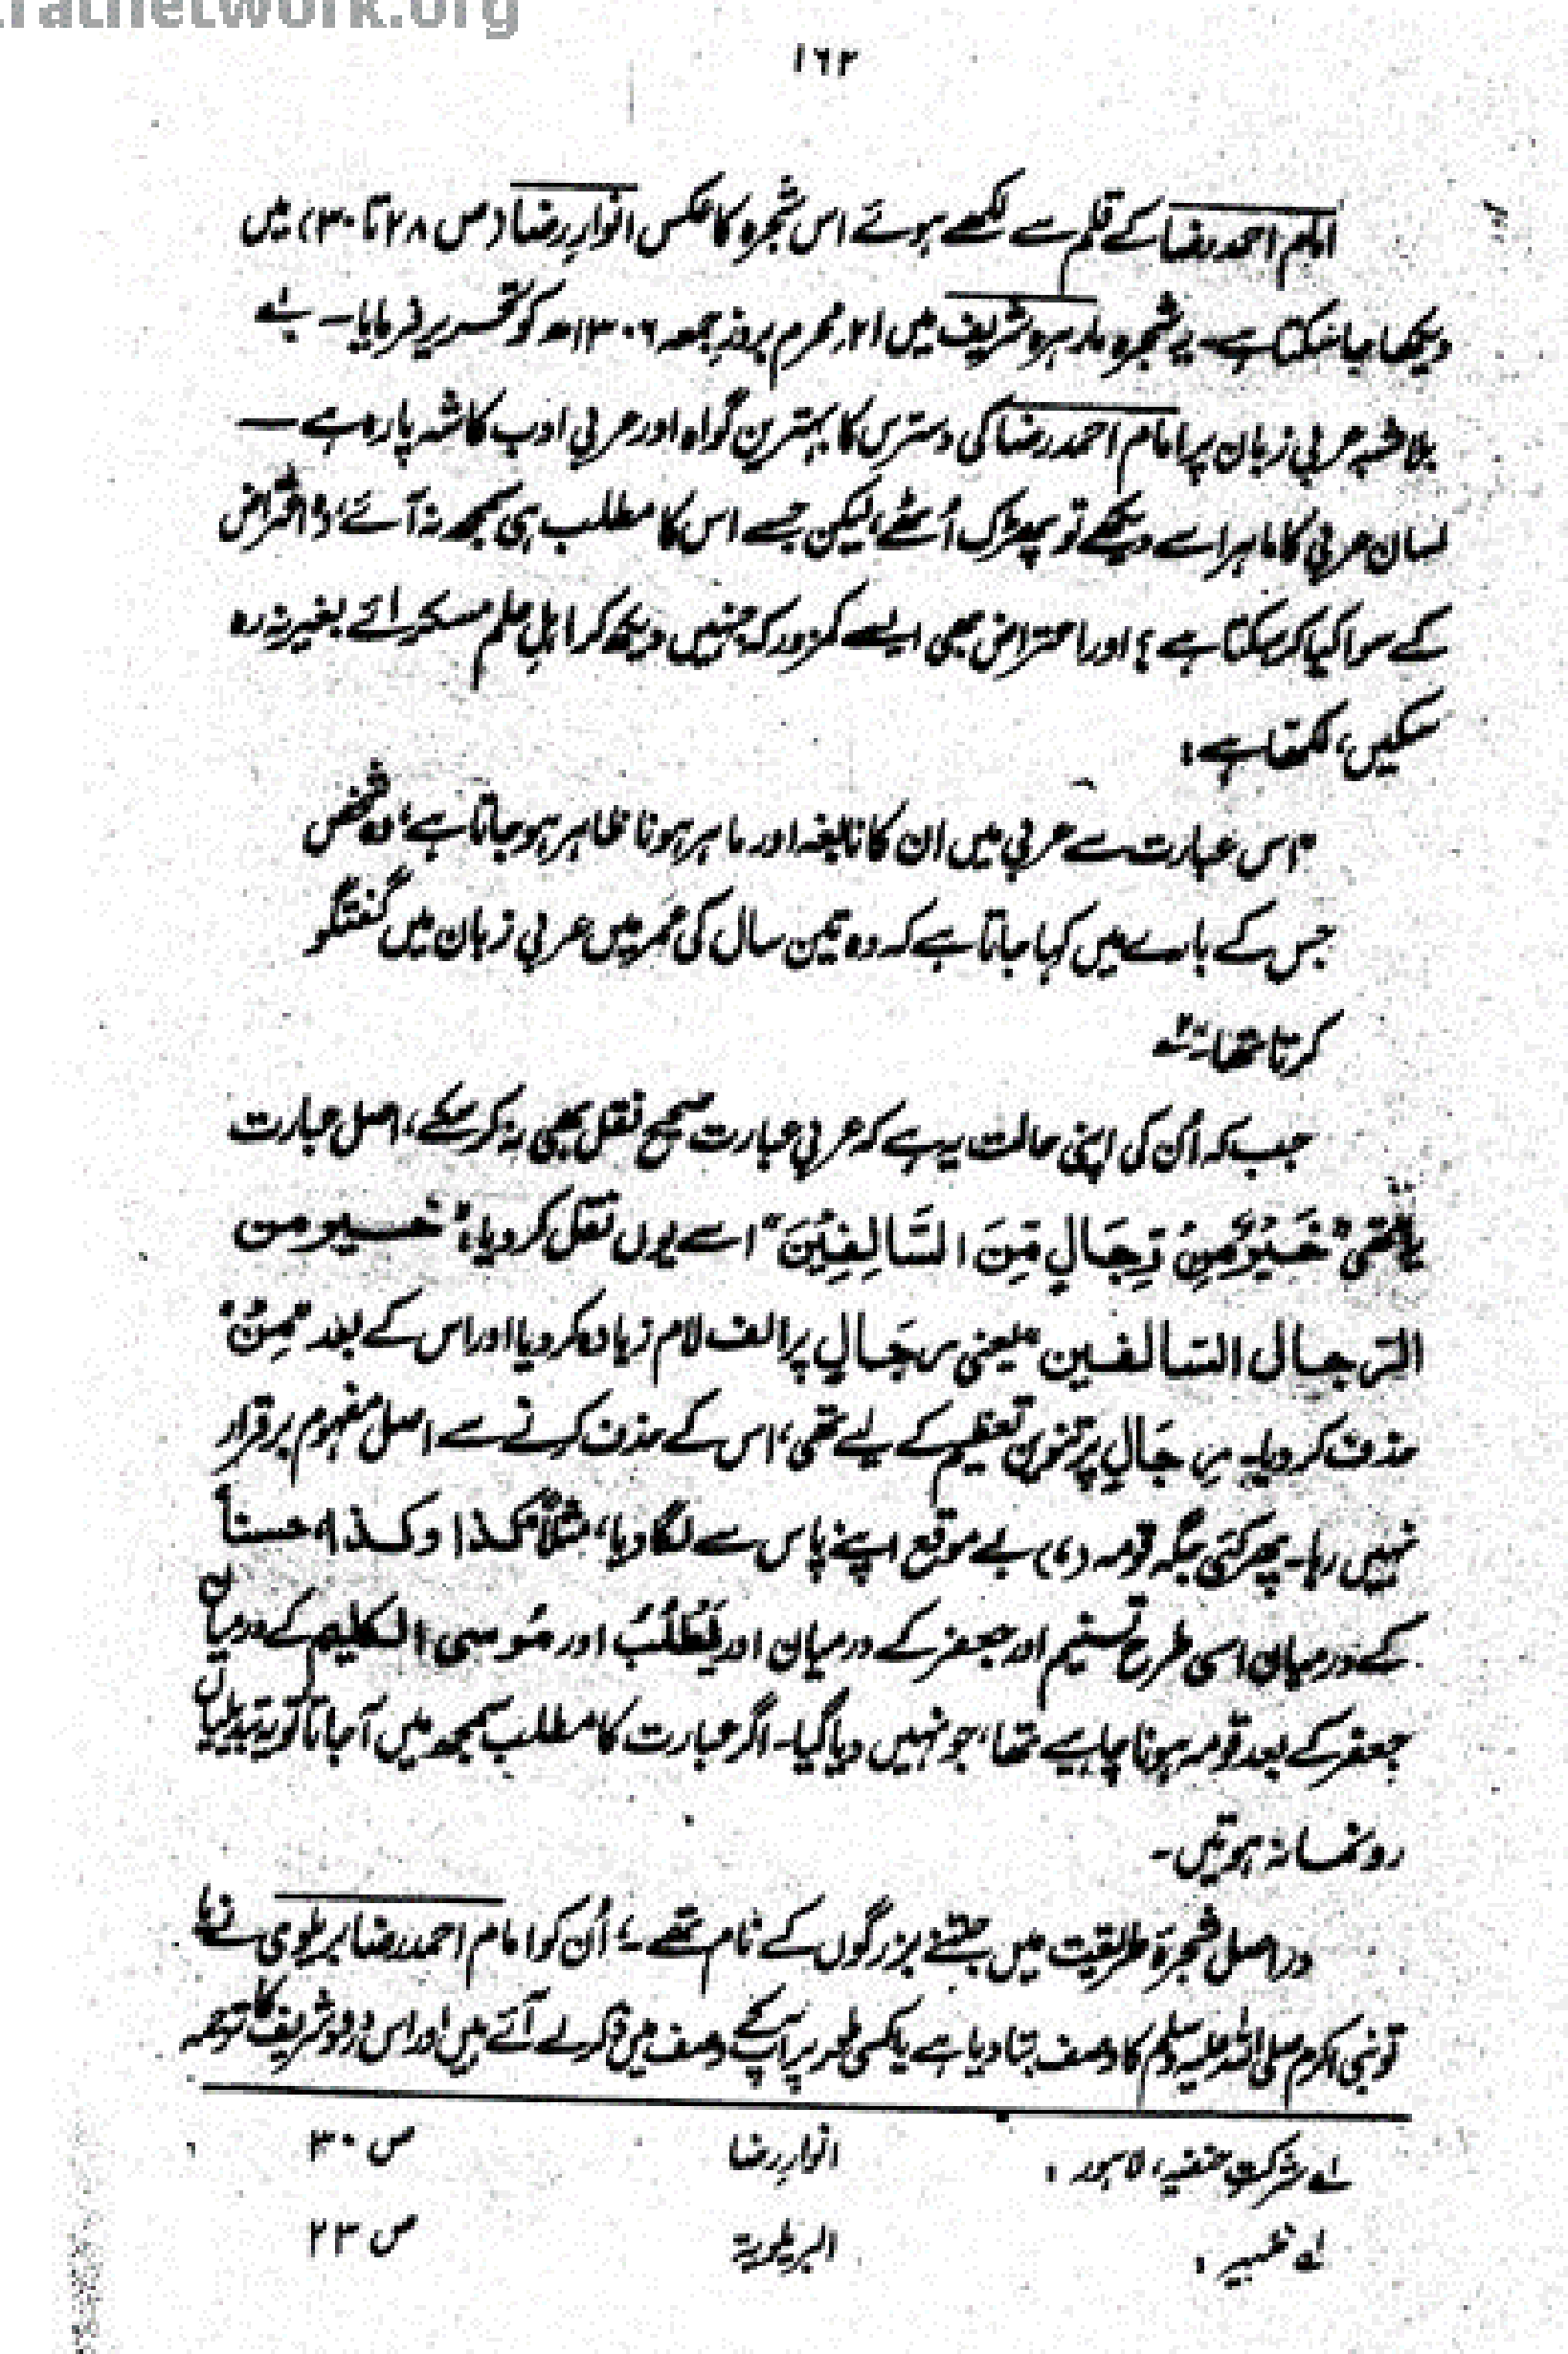 ratnetwork.org
۱۶۲
امام احمد رضا کے قلم سے لکھے ہوئے اس شجرہ کا عکس انوارِ رضا (ص ۲۸ تا ۳۰) میں
دیکھا جا سکتا ہے۔ یہ شجرہ مارہرہ شریف میں ۲۱ محرم بروز جمعہ ۱۳۰۶ھ کو تحریر فرمایا۔
بلاشبہ عربی زبان پر امام احمد رضا کی دسترس کا بہترین گواہ اور عربی ادب کا شہ پارہ ہے —
لسان عربی کا ماہر اسے دیکھے تو پھڑک اُٹھے، لیکن جسے اس کا مطلب ہی سمجھ نہ آئے، وہ اعتراض
کے سوا کیا کر سکتا ہے؟ اور اعتراض بھی ایسے کمزور کہ جنہیں دیکھ کر اہلِ علم مسکرائے بغیر نہ رہ
سکیں، لکھتا ہے:
"اس عبارت سے عربی میں ان کا نابغہ اور ماہر ہونا ظاہر ہو جاتا ہے، وہ شخص
جس کے بارے میں کہا جاتا ہے کہ وہ تین سال کی عُمر میں عربی زبان میں گفتگو
کرتا تھا۔"
جب کہ اُن کی اپنی حالت یہ ہے کہ عربی عبارت صحیح نقل بھی نہ کر سکے، اصل عبارت
یہ تھی "خَيْرٌ مِّنْ رِّجَالٍ مِّنَ السَّالِفِيْنَ" اسے یوں نقل کر دیا، "خير من
الرجال السالفين" یعنی رِجَالٍ پر الف لام زیادہ کر دیا اور اس کے بعد "مِنْ"
حذف کر دیا۔ رِجَالٍ پر تنوین تعظیم کے لیے تھی، اس کے حذف کرنے سے اصل مفہوم برقرار
نہیں رہا۔ پھر کئی جگہ قومہ (،) بے موقع اپنے پاس سے لگا دیا، مثلاً كذا وكذا، حسناً
کے درمیان اسی طرح تسنیم اور جعفر کے درمیان اور يَطْلُبُ اور مُوسى الكليم کے درمیان
جعفر کے بعد قومہ ہونا چاہیے تھا، جو نہیں دیا گیا۔ اگر عبارت کا مطلب سمجھ میں آجاتا تو یہ تبدیلیاں
رونما نہ ہوتیں۔
دراصل شجرۂ طریقت میں جتنے بزرگوں کے نام تھے، اُن کو امام احمد رضا بریلوی نے یا
تو نبی اکرم صلی اللہ علیہ وسلم کا وصف بنا دیا ہے یا کسی طور پر آپ کے وصف میں ذکر لے آئے ہیں اور اس درود شریف کا ترجمہ
لے شرکت حنفیہ، لاہور: انوارِ رضا ص ۳۰
لے ظہیر: البریلویۃ ص ۲۳